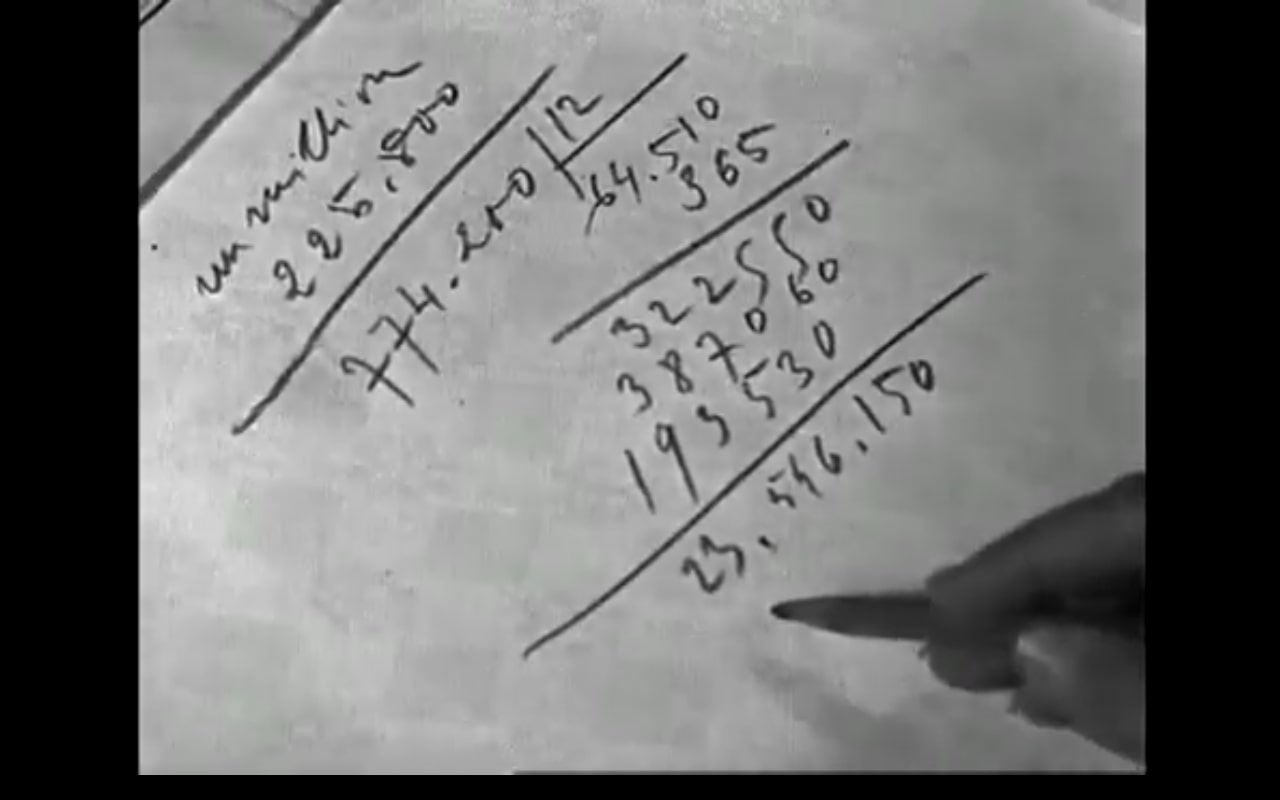 un million
225.800
774.200 | 12
64.510
365
322550
387060
193530
23.546.150